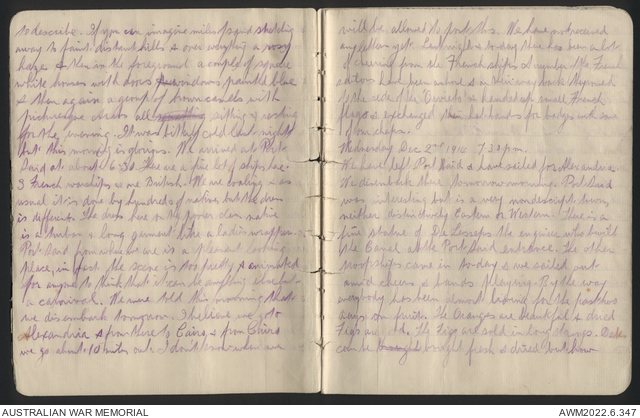 to describe. If you can imagine miles of sand stretching
away to faint distant hills & over everything a rosy
haze & then in the foreground a couple of square
white houses with doors & windows painted blue
& then again a group of brown camels with
picturesque Arabs all sitting & resting
for the evening. It was bitterly cold last night
but this morning is glorious. We arrived at Port
Said at about 6.30. There are a fine lot of ships here.
3 French warships & one British. We are coaling & as
usual it's done by hundreds of natives but the dress
is different. The dress here on the poorer class native
is a turban & long garment like a ladies wrapper.
Port Said from where we are is a pleasant looking
place, in fact the scene is too pretty & animated
for anyone to think that it can be anything else but
a carnival. We were told this morning that
we disembark tomorrow. I believe we go to
Alexandria & from there to Cairo & from Cairo
we go about 10 miles out. I don't know when we
will be allowed to post this. We have not received
any letters yet. Last night & to-day there has been a lot
of cheering from the French ships. A number of the French
sailors have been ashore & on their way back they
to the side of the & handed up small French
flags & exchanged their hat bands for badges with some
of our chaps.
Wednesday Dec 2nd 1914 7.30 pm.
We have left Port Said & have sailed for Alexandria.
We disembark there tomorrow morning. Port Said
was interesting but is a very nondescript town,
neither distinctively Eastern or Western. There is a
fine statue of De Lesseps the engineer who built
the Canal at the Port Said entrance. The other
troopships came in to-day & we sailed out
amid cheers & bands playing. By the way
everybody has been almost living for the past two
days on fruit. The Oranges are beautiful & dried
Figs are old. The Figs are sold in long strings. Dates
can be bought fresh & dried but how
AUSTRALIAN WAR MEMORIAL
AWM2022.6.347